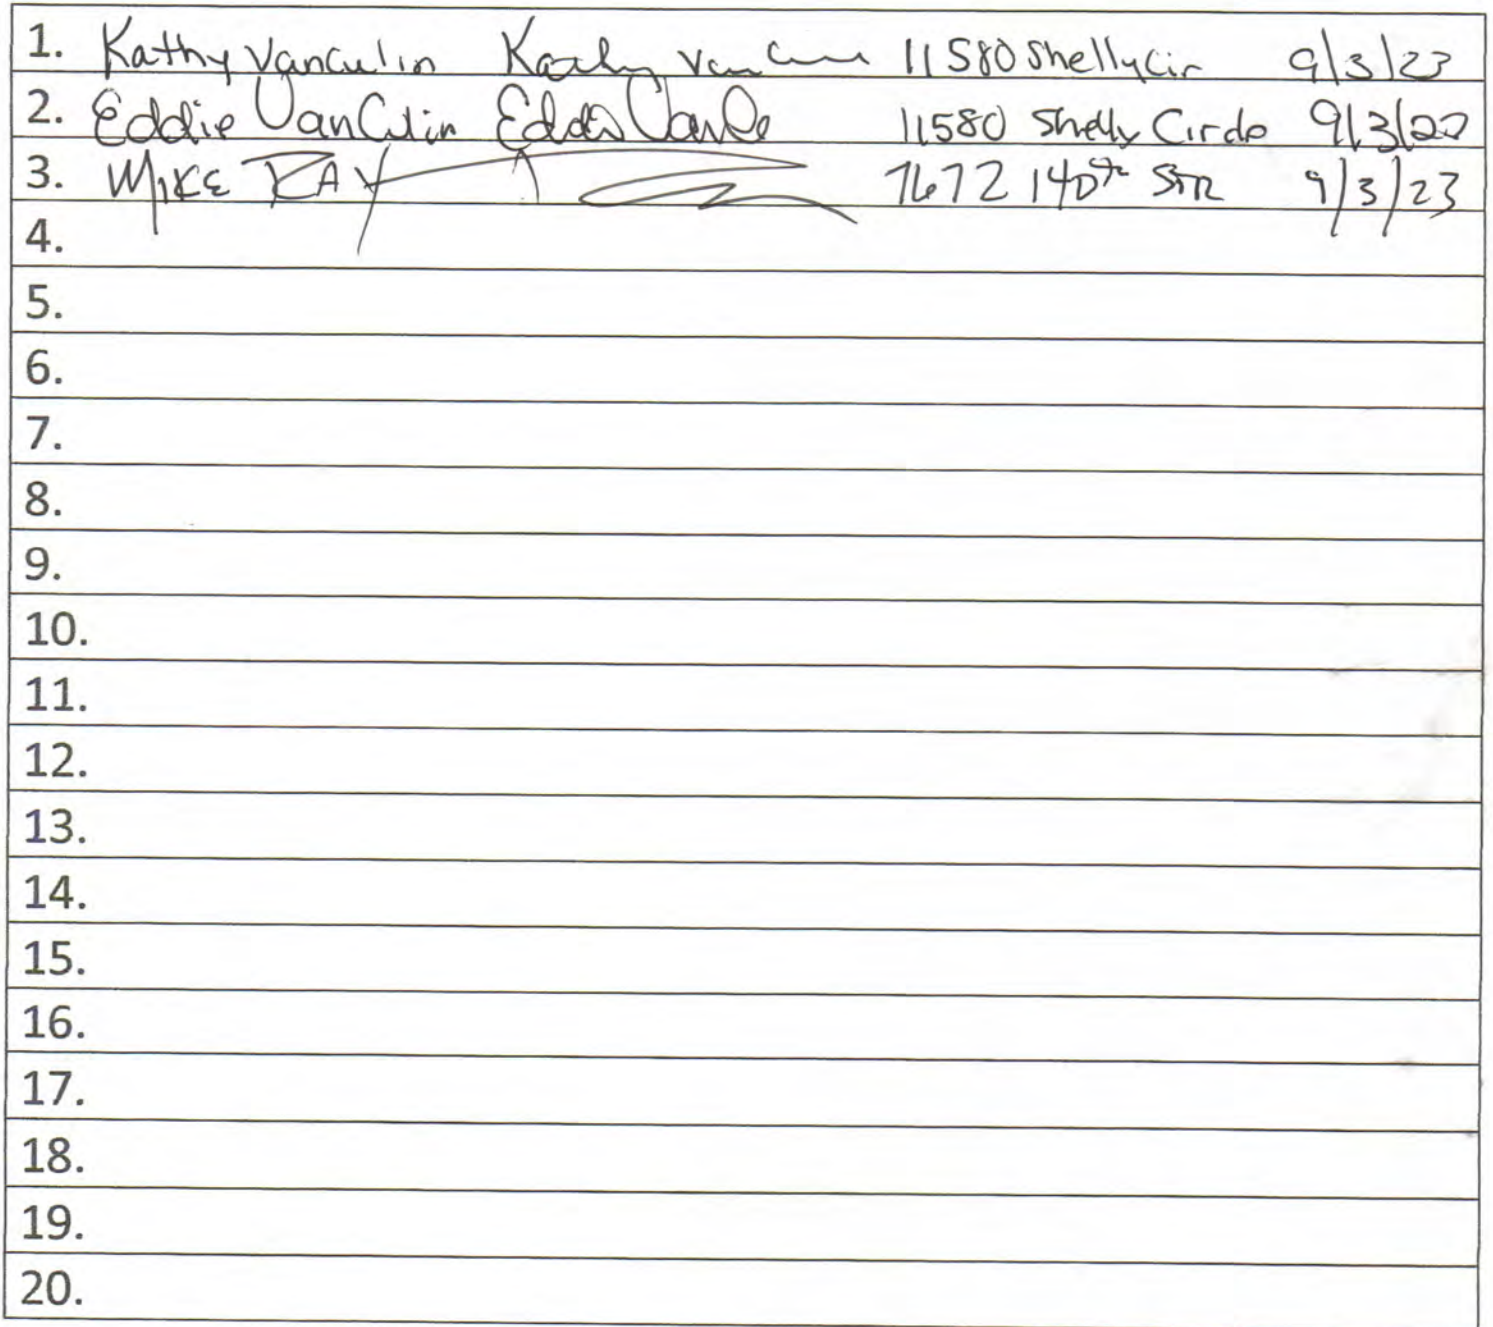 1. Kathy VanCulin Kathy Van 11580 Shelly Cir 9/3/23
2. Eddie VanCulin Eddie 11580 Shelly Circle 9/3/23
3. MIKE RAY 7672 140th STR 9/3/23
4.
5.
6.
7.
8.
9.
10.
11.
12.
13.
14.
15.
16.
17.
18.
19.
20.